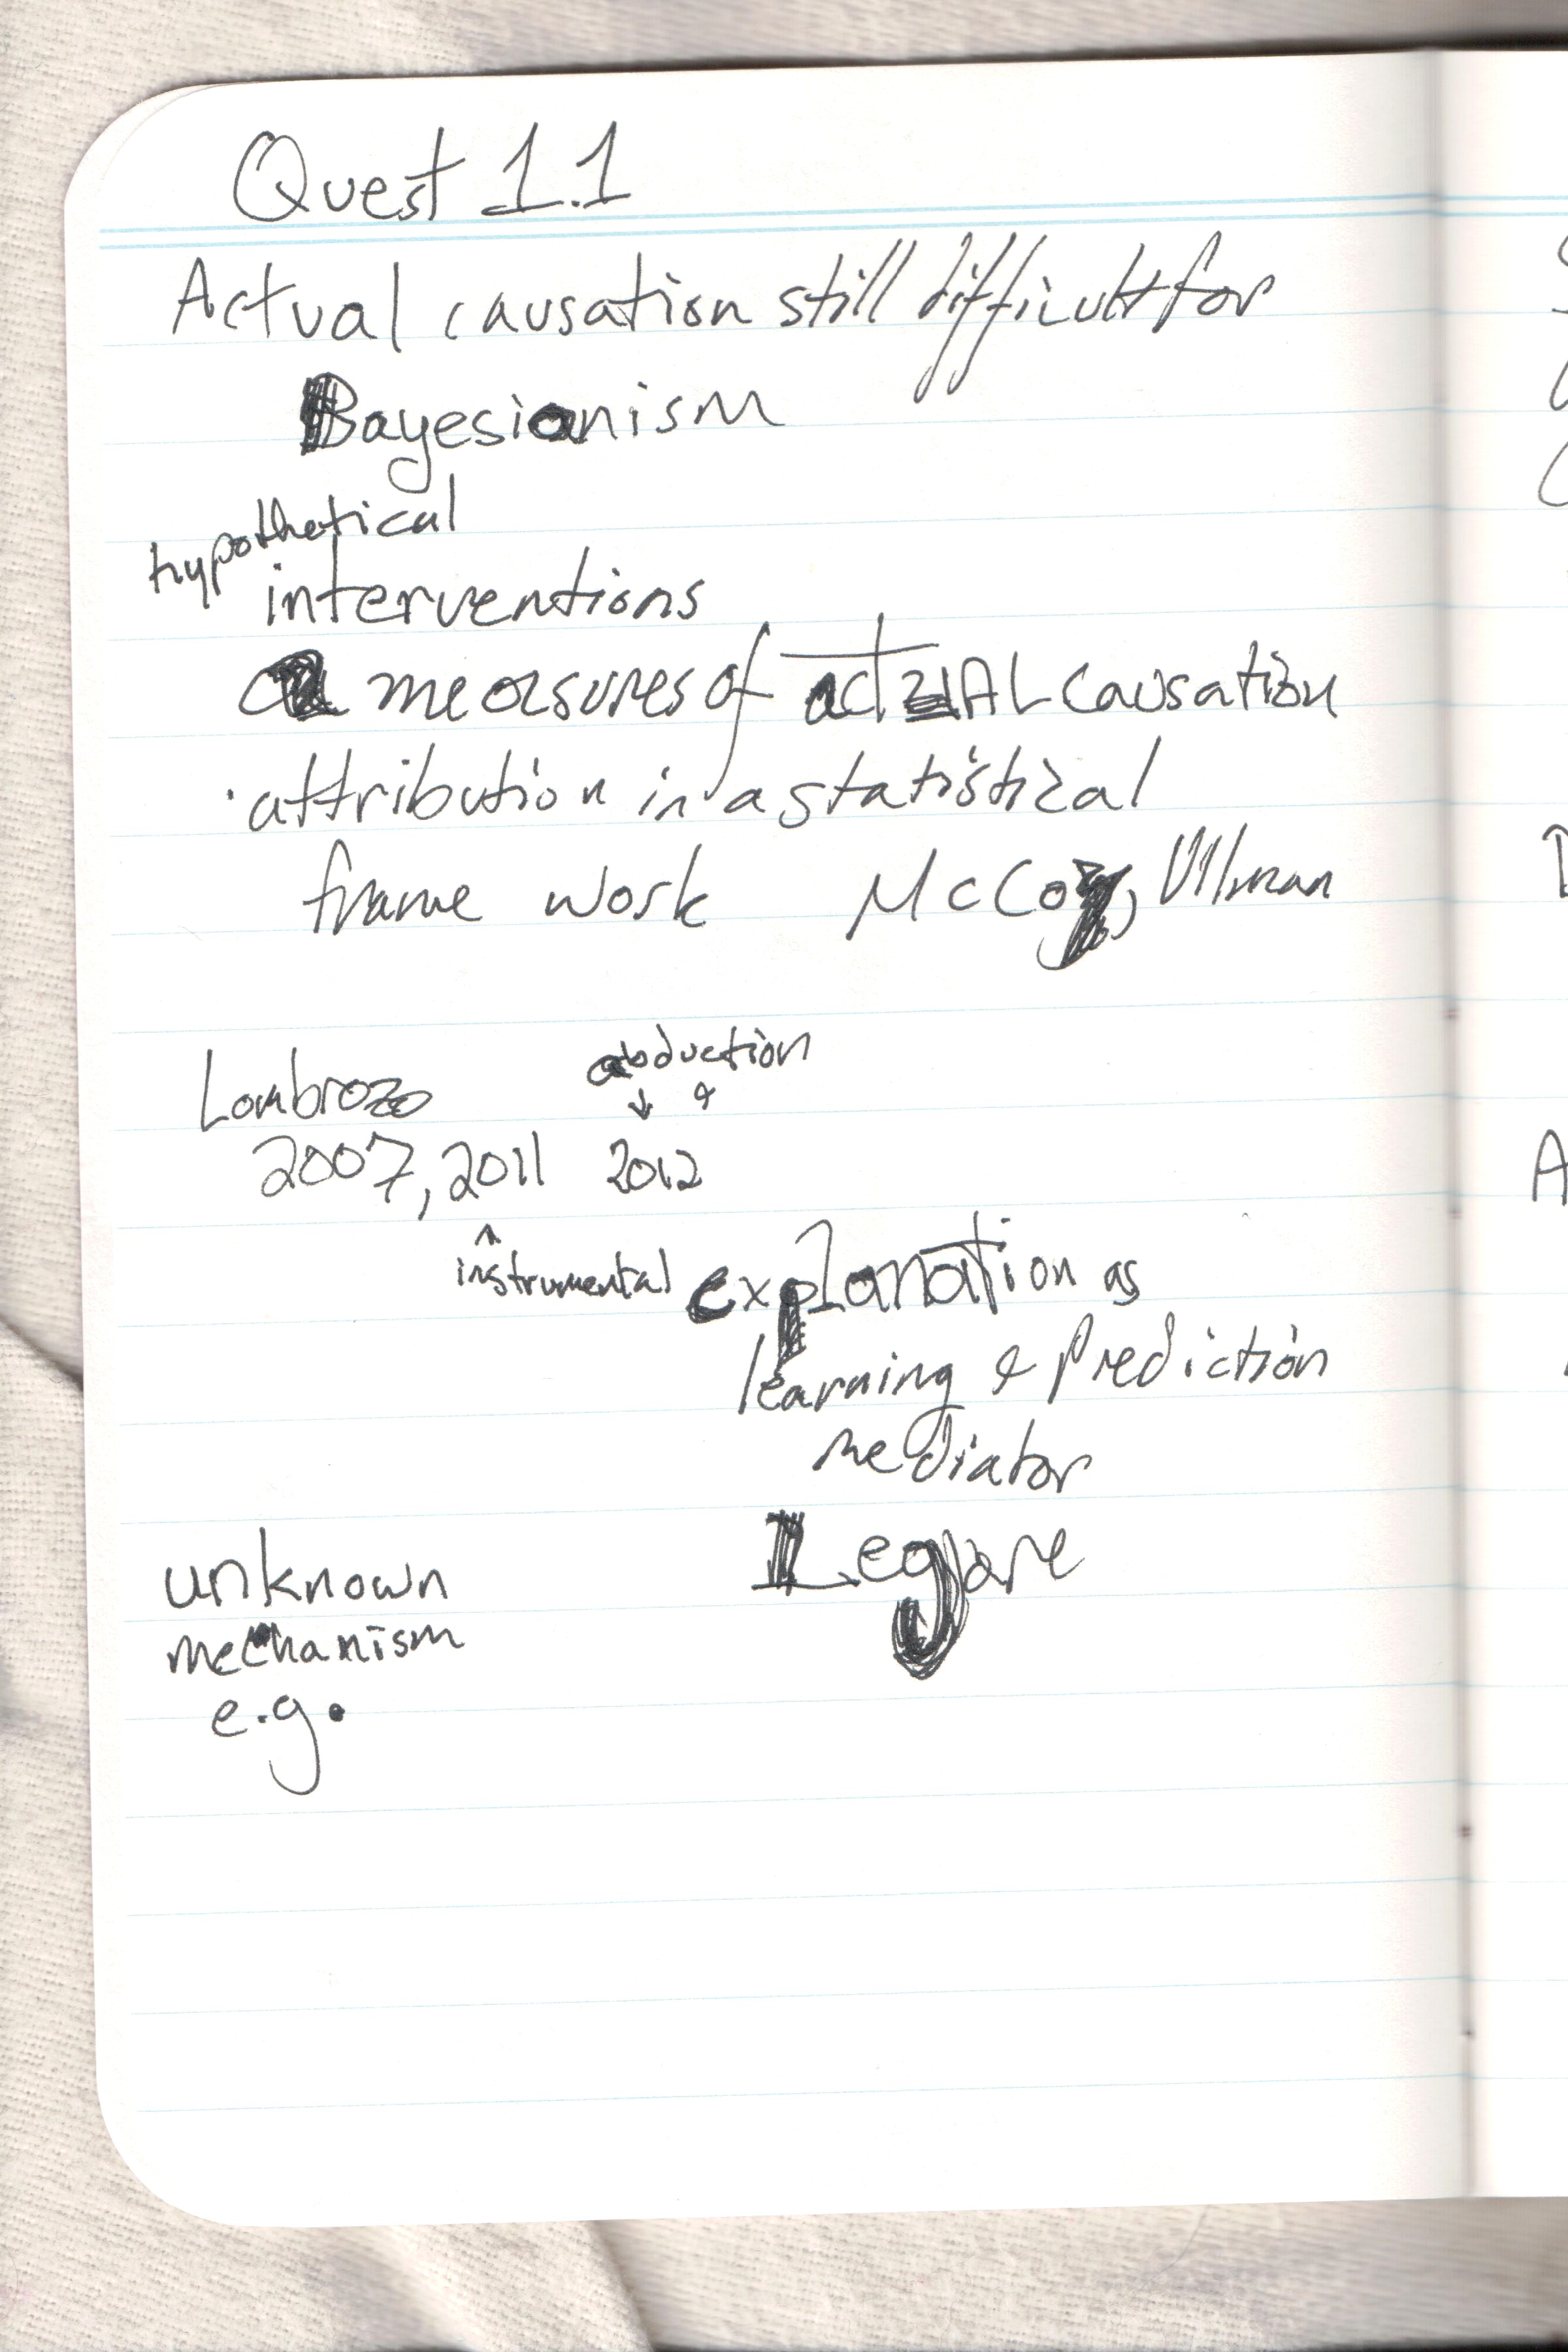 Quest 1.1
Actual causation still difficult for
Bayesianism
hypothetical
interventions
measures of actuAL causation
· attribution in a statistical
frame work McCoy, Ullman
Lombrozo
abduction
↓ &
2007, 2011 2012
^
instrumental explanation as
learning & prediction
mediator
Legare
unknown
mechanism
e.g.
A